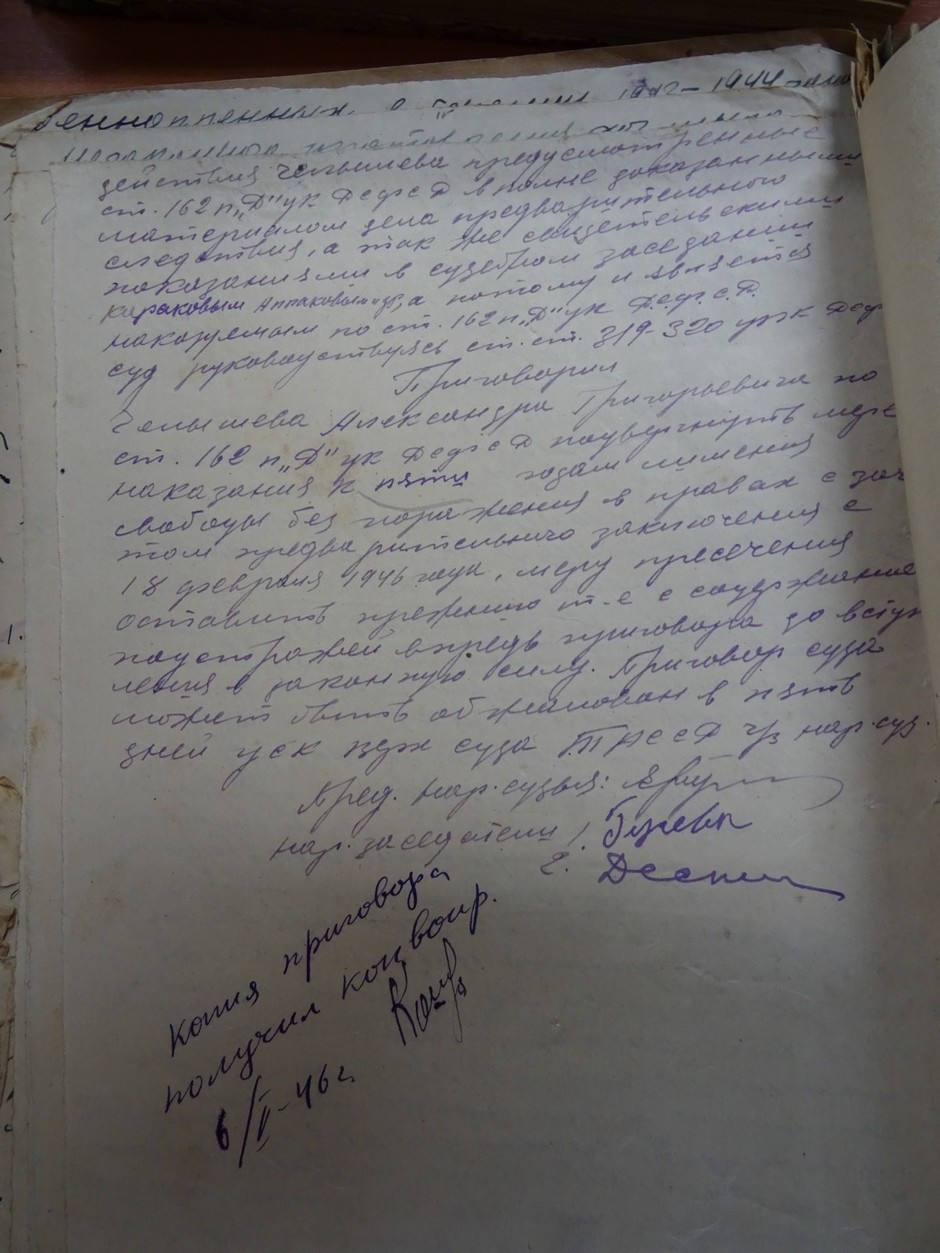 веннопленных. в течении 1942-1944
действия Челышева предусмотренные
ст. 162 п„Д" ук РСФСР вполне доказанными
материалом дела предварительного
следствия, а так же свидетельскими
показаниями в судебном заседании
Караковым Аппаковым и др, а потому и является
наказуемым по ст. 162 п„Д" ук Р.С.Ф.С.Р.
суд руководствуясь ст.ст. 319-320 упк РСФ
Приговорил
Челышева Александра Григорьевича по
ст. 162 п„Д" ук РСФСР подвергнуть мере
наказания к пяти годам лишения
свободы без поражения в правах с зач
том предварительного заключения с
18 февраля 1946 года, меру пресечения
оставить прежнюю т.е с содержание
подстражей впредь приговора до вступ
ления в законную силу. Приговор суда
может быть обжалован в пять
дней уск суда ТАССР ч/з нар.суд.
Пред. нар.судья:
нар. заседатели 1.
2.
Копия приговора
получил конвоир.
6/V-46г.